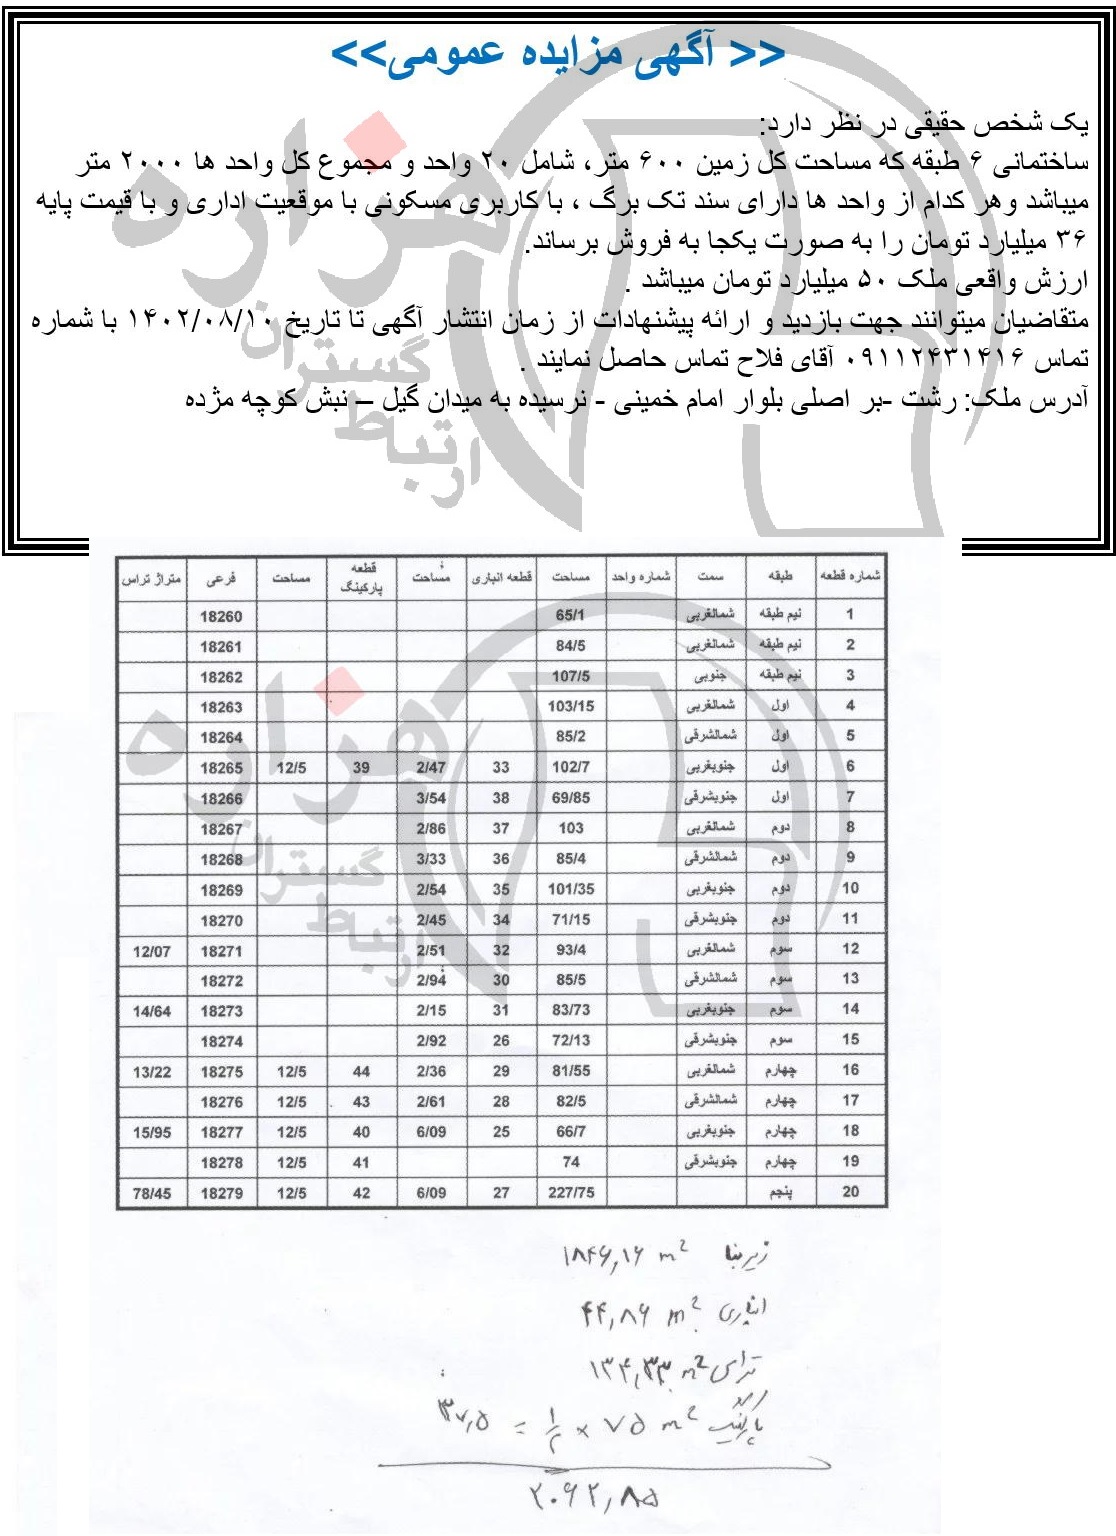 << آگهی مزایده عمومی>>
یک شخص حقیقی در نظر دارد:
ساختمانی ۶ طبقه که مساحت کل زمین ۶۰۰ متر، شامل ۲۰ واحد و مجموع کل واحد ها ۲۰۰۰ متر
میباشد وهر کدام از واحد ها دارای سند تک برگ ، با کاربری مسکونی با موقعیت اداری و با قیمت پایه
۳۶ میلیارد تومان را به صورت یکجا به فروش برساند.
ارزش واقعی ملک ۵۰ میلیارد تومان میباشد .
متقاضیان میتوانند جهت بازدید و ارائه پیشنهادات از زمان انتشار آگهی تا تاریخ ۱۴۰۲/۰۸/۱۰ با شماره
تماس ۰۹۱۱۲۴۳۱۴۱۶ آقای فلاح تماس حاصل نمایند .
آدرس ملک: رشت -بر اصلی بلوار امام خمینی - نرسیده به میدان گیل – نبش کوچه مژده
هزاره
گستران
ارتباط
شماره قطعه طبقه سمت شماره واحد مساحت قطعه انباری مساحت قطعه پارکینگ مساحت فرعی متراژ تراس
1 نیم طبقه شمالغربی 65/1 18260
2 نیم طبقه شمالغربی 84/5 18261
3 نیم طبقه جنوبی 107/5 18262
4 اول شمالغربی 103/15 18263
5 اول شمالشرقی 85/2 18264
6 اول جنوبغربی 102/7 33 2/47 39 12/5 18265
7 اول جنوبشرقی 69/85 38 3/54 18266
8 دوم شمالغربی 103 37 2/86 18267
9 دوم شمالشرقی 85/4 36 3/33 18268
10 دوم جنوبغربی 101/35 35 2/54 18269
11 دوم جنوبشرقی 71/15 34 2/45 18270
12 سوم شمالغربی 93/4 32 2/51 18271 12/07
13 سوم شمالشرقی 85/5 30 2/94 18272
14 سوم جنوبغربی 83/73 31 2/15 18273 14/64
15 سوم جنوبشرقی 72/13 26 2/92 18274
16 چهارم شمالغربی 81/55 29 2/36 44 12/5 18275 13/22
17 چهارم شمالشرقی 82/5 28 2/61 43 12/5 18276
18 چهارم جنوبغربی 66/7 25 6/09 40 12/5 18277 15/95
19 چهارم جنوبشرقی 74 41 12/5 18278
20 پنجم 227/75 27 6/09 42 12/5 18279 78/45
زیربنا ۱۸۴۶٫۱۶ m²
انباری ۴۴٫۸۶ m²
تراس ۱۳۴٫۳۳ m²
پارکینگ ۷۵ m² × ۱/۲ = ۳۷٫۵
۲۰۶۲٫۸۵
هزاره
گستران
ارتباط